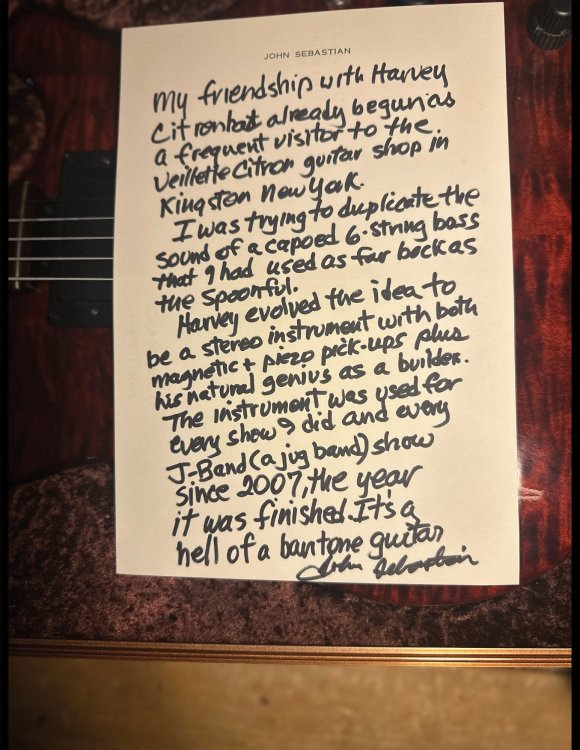 JOHN SEBASTIAN
My friendship with Harvey
Citron had already begun as
a frequent visitor to the
Veillette Citron guitar shop in
Kingston New York.
I was trying to duplicate the
sound of a capoed 6-string bass
that I had used as far back as
the Spoonful.
Harvey evolved the idea to
be a stereo instrument with both
magnetic + piezo pick-ups plus
his natural genius as a builder.
The instrument was used for
every show I did and every
J-Band (a jug band) show
since 2007, the year
it was finished. It's a
hell of a baritone guitar
John Sebastian